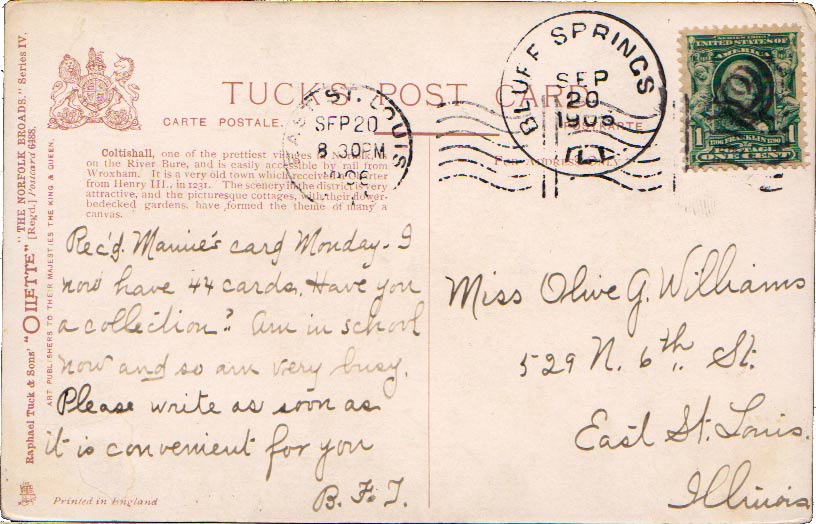 TUCK'S POST CARD
CARTE POSTALE.
POSTKARTE
FOR ADDRESS ONLY
Raphael Tuck & Sons' "OILETTE" "THE NORFOLK BROADS." Series IV.
[Regd.] Postcard 6488.
ART PUBLISHERS TO THEIR MAJESTIES THE KING & QUEEN.
Coltishall, one of the prettiest villages in Norfolk, is
on the River Bure, and is easily accessible by rail from
Wroxham. It is a very old town which received its charter
from Henry III., in 1231. The scenery in the district is very
attractive, and the picturesque cottages, with their flower-
bedecked gardens, have formed the theme of many a
canvas.
EAST ST. LOUIS
SEP 20
8 30 PM
BLUFF SPRINGS
SEP
20
ILL.
SERIES 1902
UNITED STATES OF
AMERICA
FRANKLIN
1 1
ONE CENT
Rec'd. Mamie's card Monday - I
now have 44 cards. Have you
a collection? Am in school
now and so am very busy.
Please write as soon as
it is convenient for you
B. F. T.
Miss Olive G. Williams
529 N. 6th. St.
East St. Louis.
Illinois
Printed in England